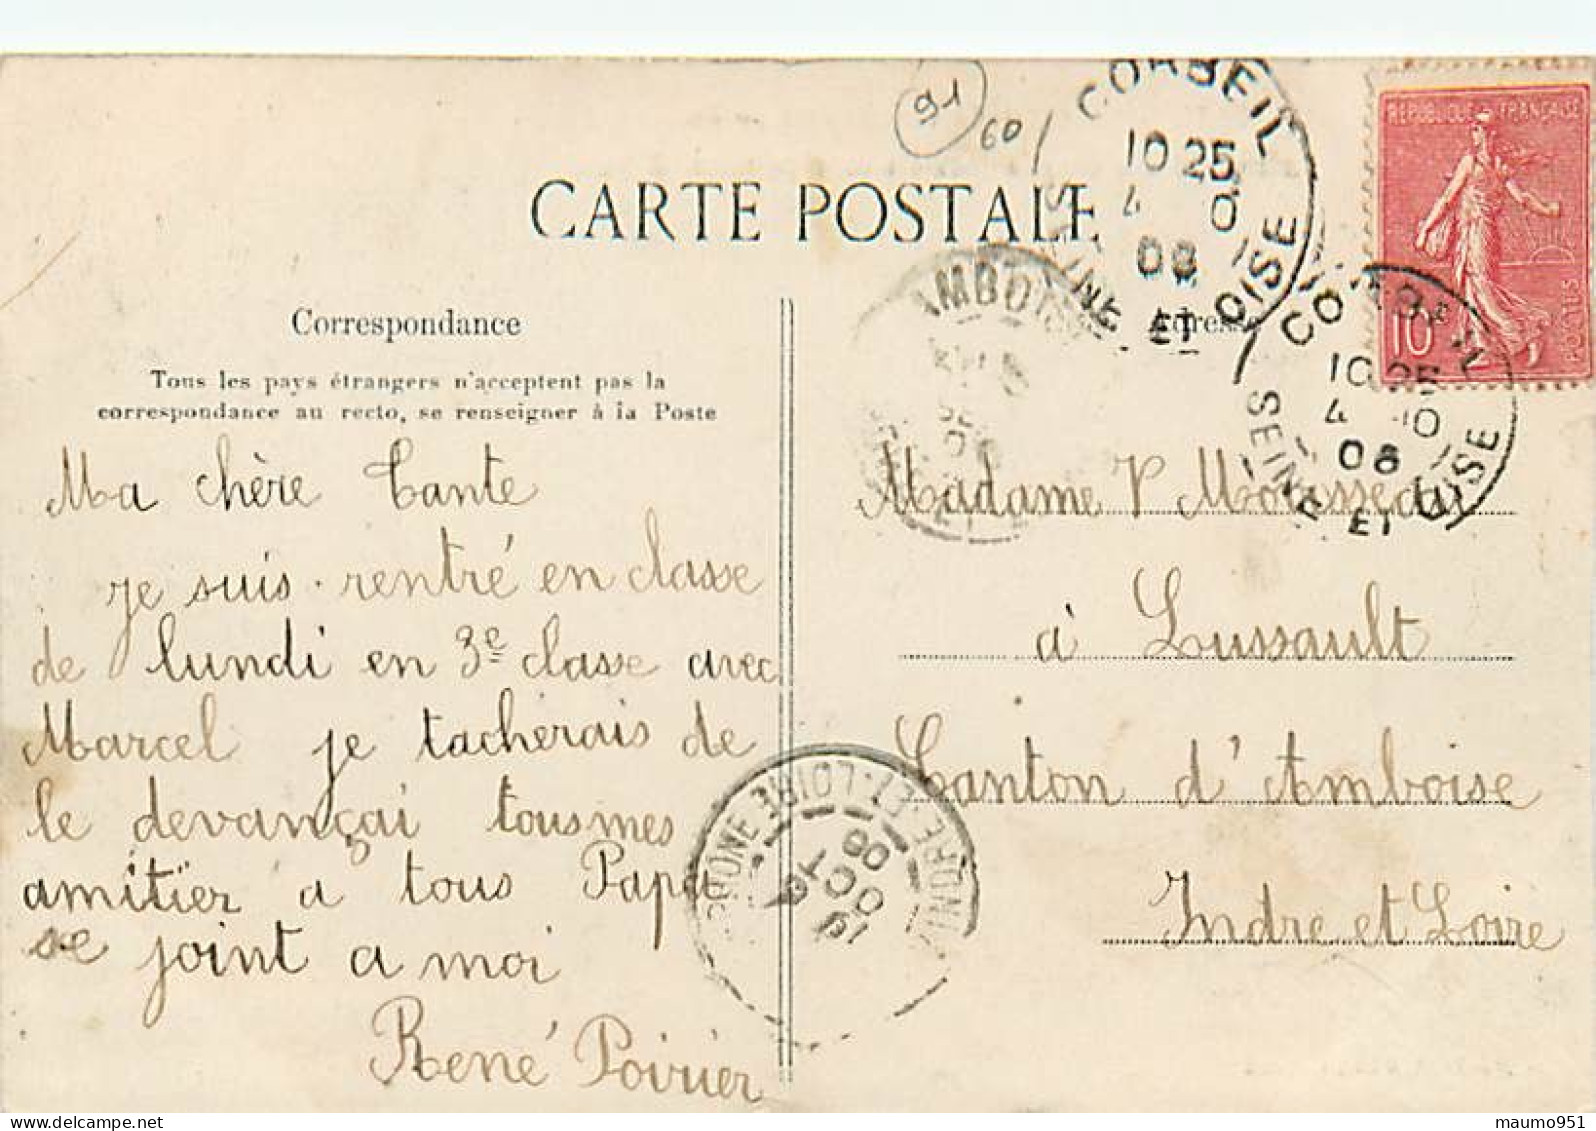 91
60
CARTE POSTALE
CORBEIL
10 25
4 10
08
SEINE ET OISE
REPUBLIQUE FRANÇAISE
10
POSTES
CORBEIL
10 25
4 10
08
SEINE ET OISE
AMBOISE
Correspondance
Adresse
Tous les pays étrangers n'acceptent pas la
correspondance au recto, se renseigner à la Poste
Ma chère tante
je suis rentré en classe
de lundi en 3e classe avec
Marcel je tacherais de
le devançai tousmes
amitier a tous Papa
se joint a moi
René Poirier
Madame V Mousseau
à Lussault
Canton d'Amboise
Indre et Loire
INDRE-ET-LOIRE
OCT
08
maumo951